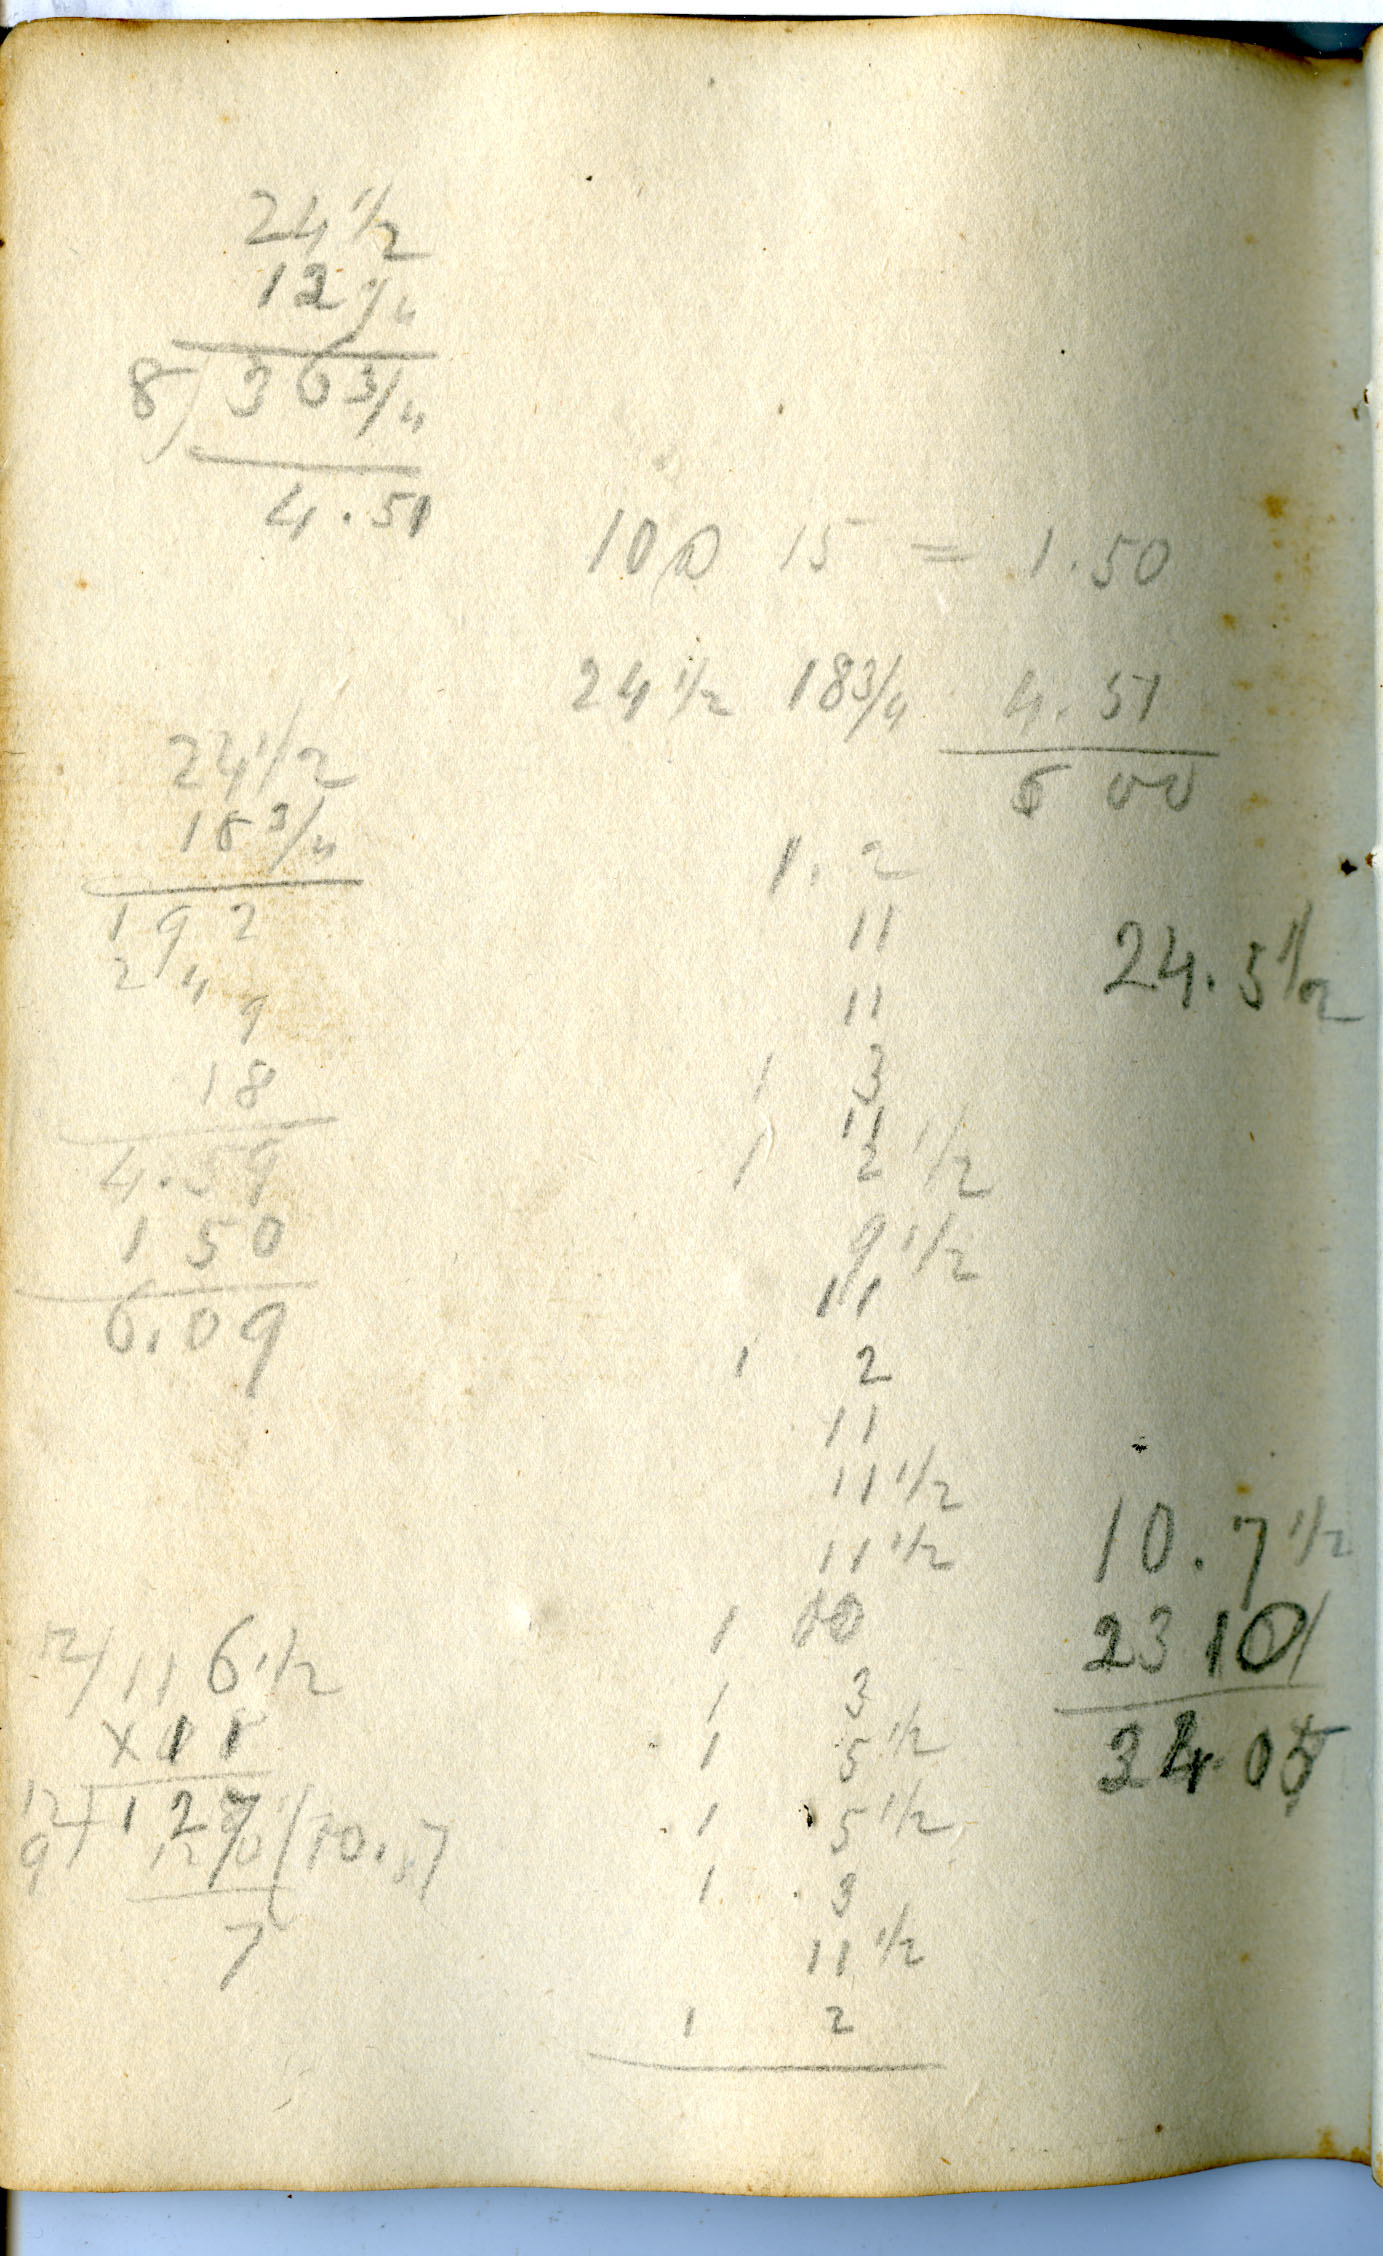 24 1/2
12 1/4
8) 36 3/4
4.51
10 @ 15 = 1.50
24 1/2 18 3/4 4.51
6 00
24 1/2
18 3/4
192
24
9
18
4.59
1 50
6.09
1. 2
11
11
1 3
11
1 2 1/2
9 1/2
11
1 2
11
11 1/2
11 1/2
1
1 3
1 5 1/2
1 5 1/2
1 3
11 1/2
1 2
24.5 1/2
10.7 1/2
23 10
24 05
12) 11 6 1/2
x 11
12) 127 (10.7
9 120
7